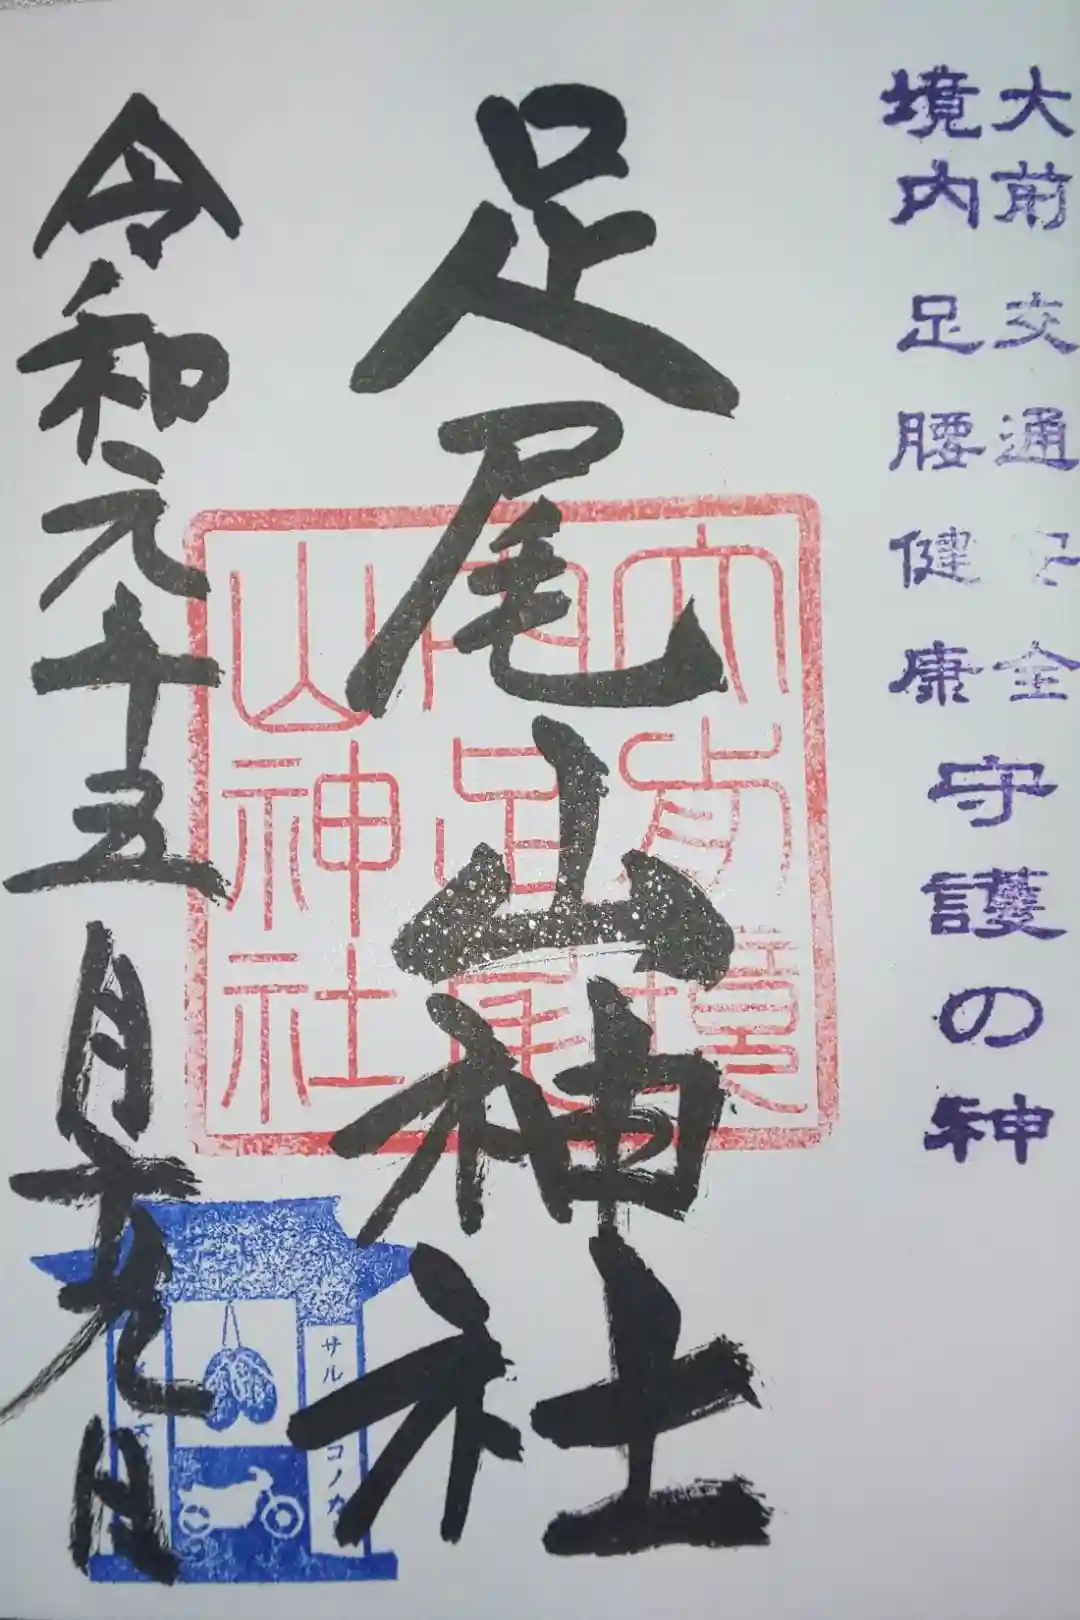 大前 交通安全
境内 足腰健康
守護の神
足尾山神社
大前境
内足尾
山神社
令和元年五月十九日
サル
コノカ